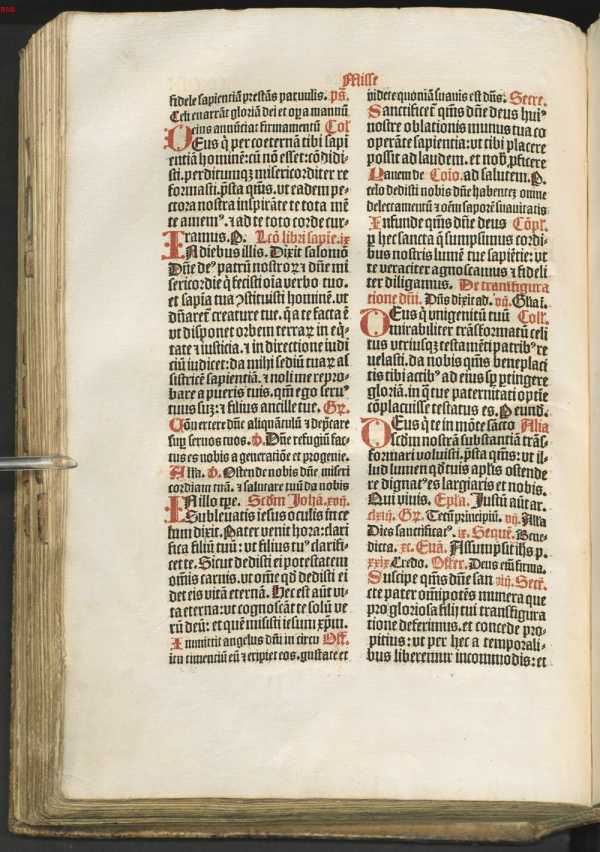 Misse
fidele sapientiā prestās paruulis. ps̄.
Celi enarrāt gloriā dei et oꝑa manuū
eius annūciat firmamentū Col̄
DEus q̇ per coeternā tibi sapi
entiā hominē: cū nō esset: cōdidi-
sti. perditumqꝫ misericorditer re
formasti. p̄sta q̄ms. vt eadem pe-
ctora nostra inspirāte te tota mē
te amemꝰ. ⁊ ad te toto corde cur-
ramus. P. Lc̄ō libri sapīe. ix
IN diebus illis. Dixit salomō
Dn̄e deꝰ patrū nostroꝝ ⁊ dn̄e mi
sericordie q̇ fecisti oīa verbo tuo.
et sapīa tua ꝯstituisti hominē. vt
dn̄aret̄ creature tue. q̄ a te facta ē
vt disponet orbem terraꝝ in eq̄-
tate ⁊ iusticia. ⁊ in directione iudi
ciū iudicet: da mihi sediū tuaꝝ as
sistricē sapientiā. ⁊ noli me repro-
bare a pueris tuis. qm̄ ego seruꝰ
tuus suꝫ: ⁊ filius ancille tue. Gr̄.
Cōuertere dn̄e aliquātulū ⁊ dep̄care
suꝑ seruos tuos. v̄. Dn̄e refugiū fac-
tus es nobis a generatiōe et progenie.
Alla. v̄. Ostende nobis dn̄e miseri
cordiam tuā. ⁊ salutare tuū da nobis
IN illo tp̄e. Scd̄m Johā. xvij.
Subleuatis iesus oculis in ce
lum dixit. Pater venit hora: clari
fica filiū tuū: vt filius tuꝰ clarifi-
cet te. Sicut dedisti ei potestatem
om̄is carnis. vt om̄e qd̄ dedisti ei
det eis vitā eternā. Hec est aūt vi-
ta eterna: vt cognoscāt te solū ve
rū deū: et quē misisti iesum xp̄m.
Immittit angelus dn̄i in circu Off̄.
itu timentiū eū ⁊ eripiet eos. gustate et
videte quoniā suauis est dn̄s. Secre.
Sanctificet̄ q̄ms dn̄e deus huiꝰ
nostre oblationis munus tua co
operāte sapientia: vt tibi placere
possit ad laudem. et nob̄ ꝓficere
Panem de Cōio. ad salutem. P.
celo dedisti nobis dn̄e habenteꝫ omne
delectamentū ⁊ oēm saporē suauitatis
Infunde q̄ms dn̄e deus Cōpl̄.
ꝑ hec sancta q̄ sumpsimus cordi-
bus nostris lumē tue sapiētie: vt
te veraciter agnoscamus ⁊ fideli
ter diligamus. De transfigura
tione dn̄i. Dn̄s dixit ad. vij. Gl̄ia ī.
DEus q̇ vnigenitū tuū Coll̄.
mirabiliter trāsformatū celi
tus vtriusqꝫ testamēti patribꝰ re
uelasti. da nobis q̄ms beneplaci
tis tibi actibꝰ ad eius sꝑ ꝑtingere
gloriā. in q̄ tue paternitati optīe
cōplacuisse testatus es. P eund.
DEus q̇ te in mōte sacro Alia
scd̄m nostrā substantiā trās-
formari voluisti. p̄sta q̄ms: vt il-
lud lumen qd̄ tuis apl̄is ostende
re dignatꝰ es largiaris et nobis.
Qui viuis. Epl̄a. Justū aūt ar.
clxiij. Gr̄. Tecū principiū. vij. Alla
Dies sanctificatꝰ. ix. Sequē. Bene-
dicta. xc. Euā. Assumpsit ih̄s p.
xxix Credo. Offer. Deus em̄ firma.
Suscipe q̄ms dn̄e san viij. Secr̄.
cte pater om̄ipotēs munera que
pro gloriosa filij tui transfigura
tione deferimus. et concede pro-
pitius: vt per hec a temporali-
bus liberemur incommodis: et